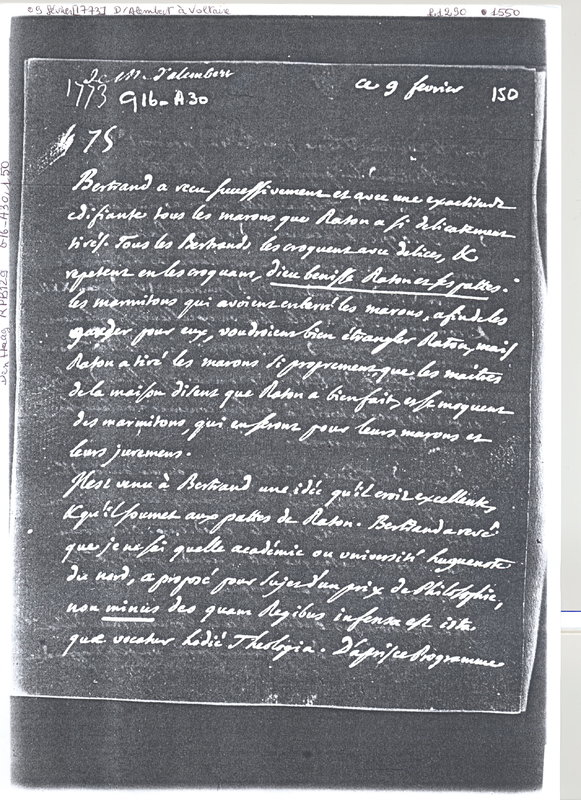 09 février [1773] D'Alembert à Voltaire
1290 • 1550
De M. d'alembert
1773 G16-A30
ce 9 fevrier
150
75
Bertrand a recu successivement et avec une exactitude
edifiante tous les marons que Raton a si delicatement
tirés. Tous les Bertrands les croquent avec delices, &
repetent en les croquant, dieu benisse Raton et ses pattes.
les marmitons qui avoient enterré les marons, afin de les
garder pour eux, voudroient bien étrangler Raton, mais
Raton a tiré les marons si proprement que les maitres
de la maison disent que Raton a bien fait, et se moquent
des marmitons, qui en seront pour leurs marons et
leurs juremens.
Il est venu à Bertrand une idée qu'il croit excellente,
& qu'il soumet aux pattes de Raton. Bertrand a revé
que je ne sai quelle académie ou université huguenote
du nord, a proposé pour sujet d'un prix de Philosophie,
non minus deo quam Regibus infensa est ista
quæ vocatur hodiè Theologia. D'après ce Programme
Den Haag RPB129 G16-A30, 150